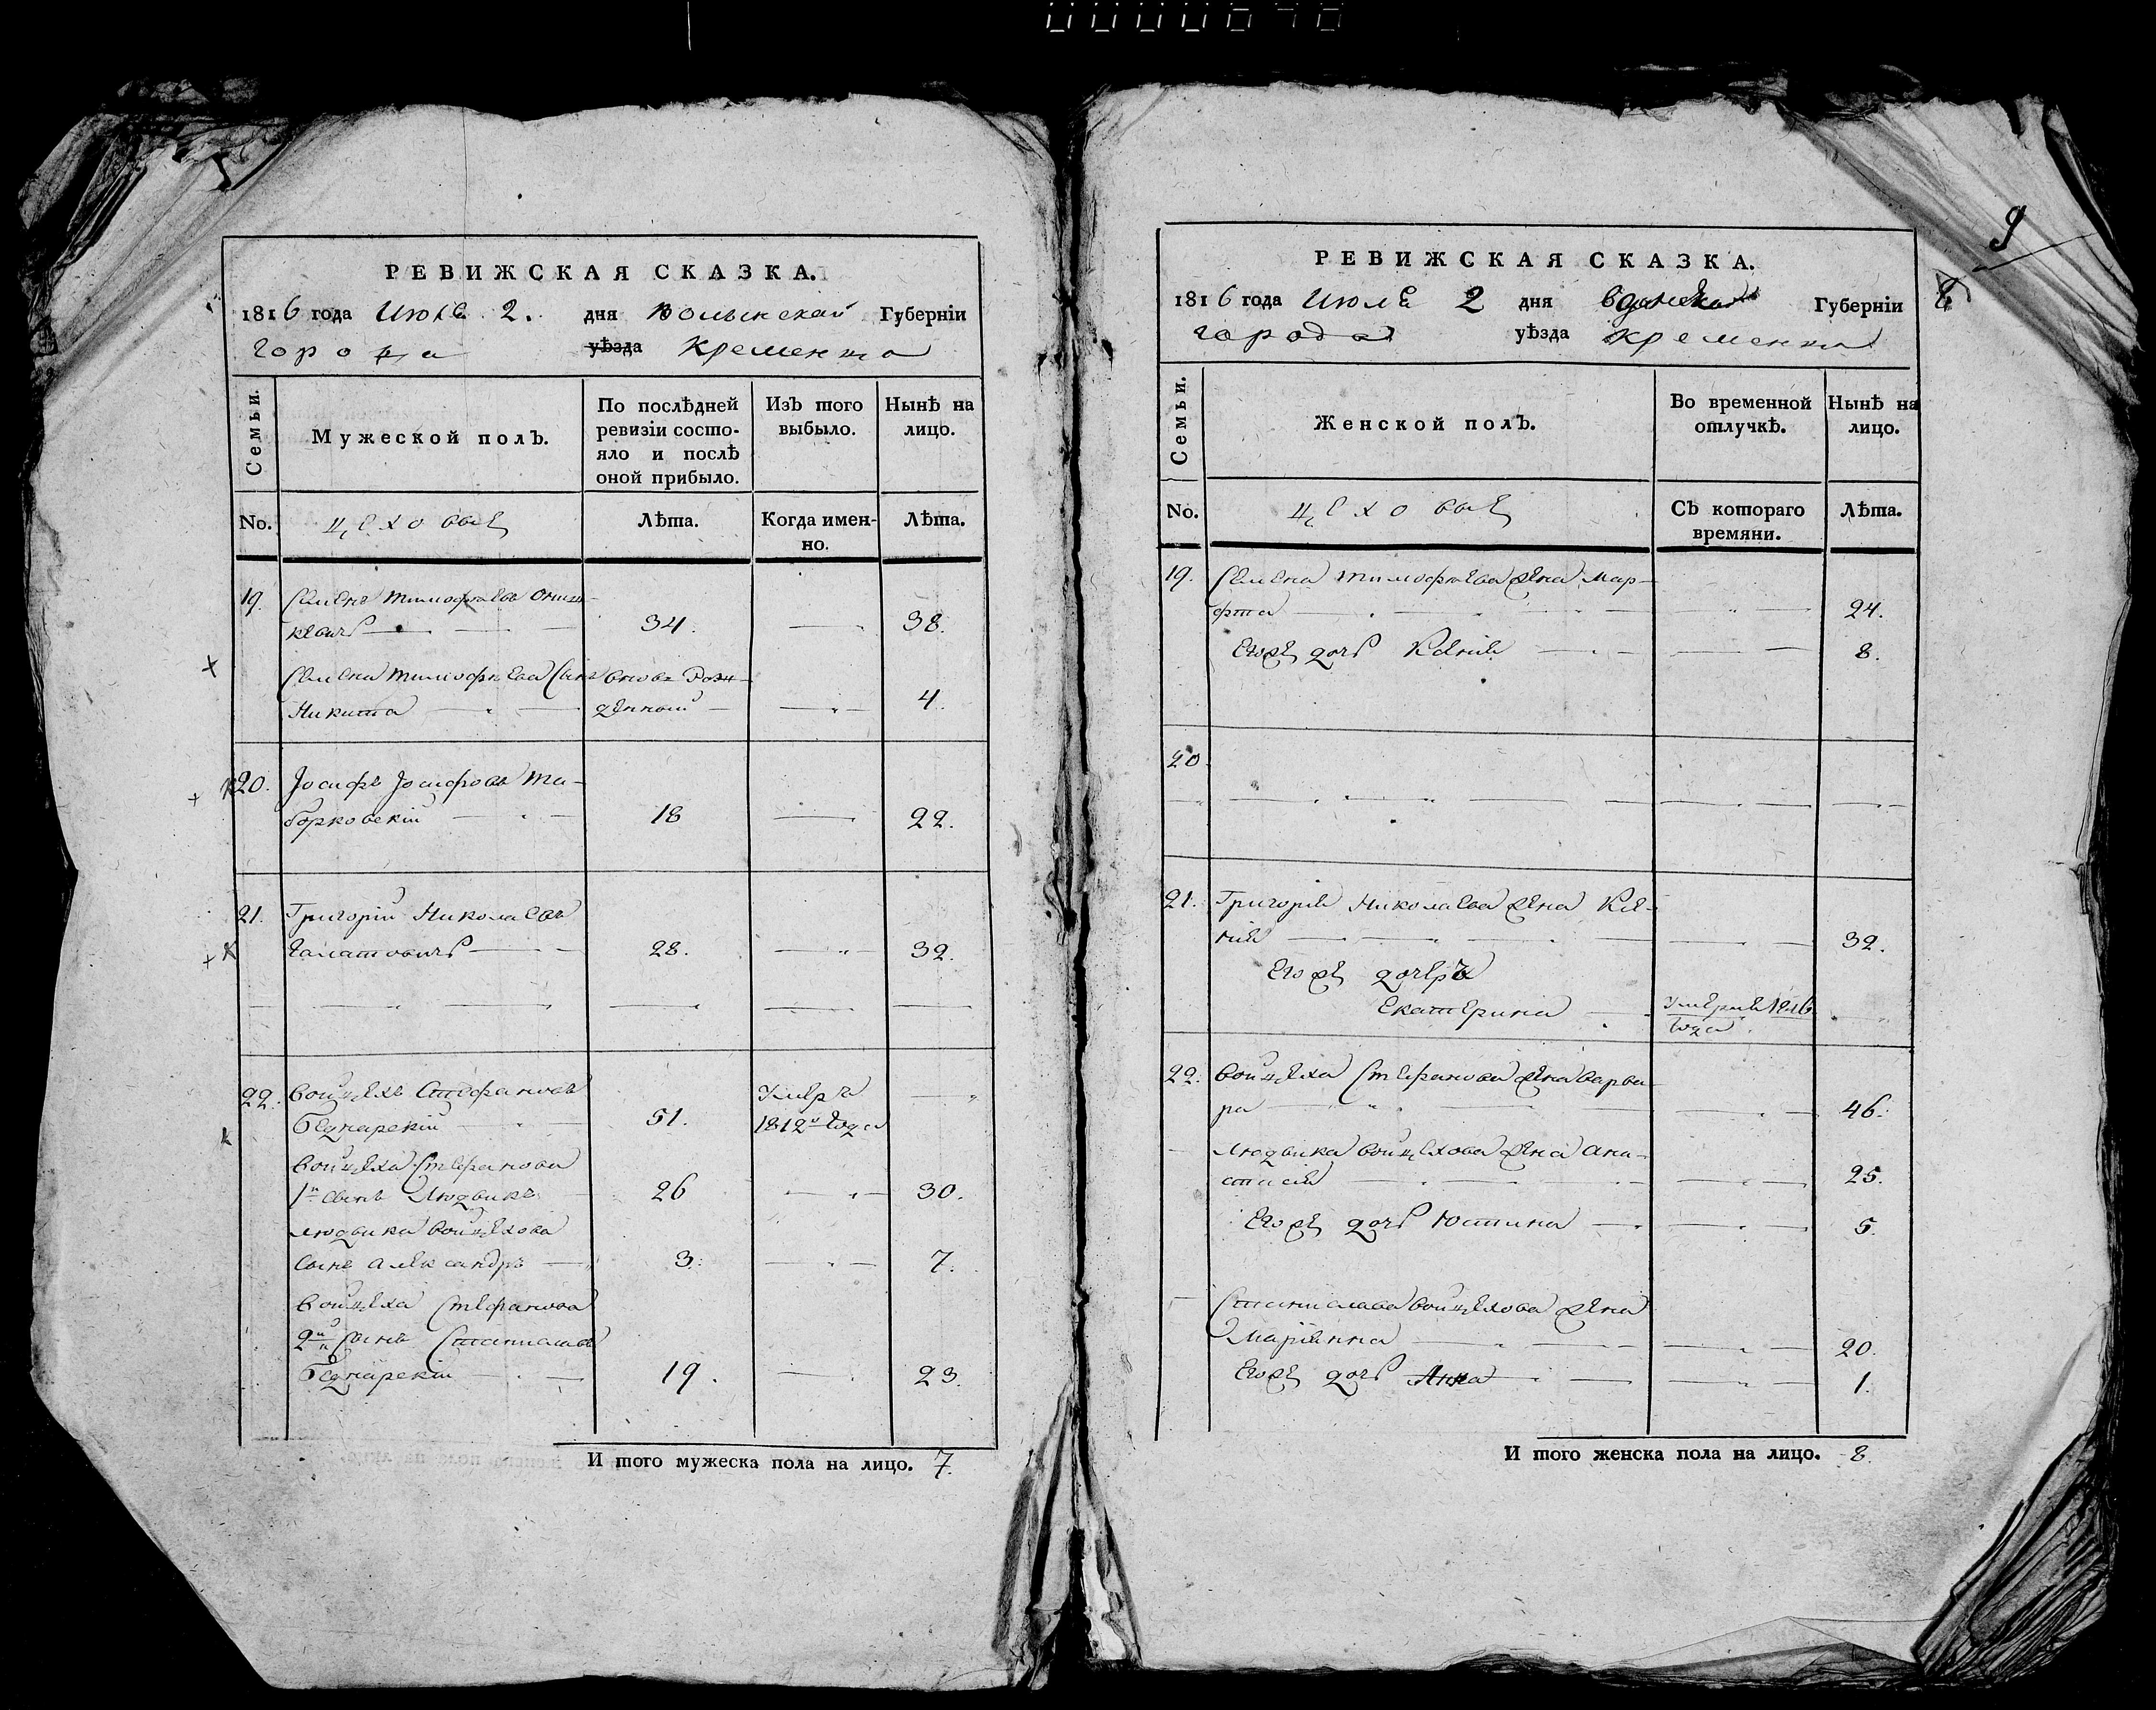 0000648
РЕВИЖСКАЯ СКАЗКА.
1816 года Июля 2. дня Волынской Губернїи
города уѣзда Кременца
Семьи.
Мужеской полъ.
По послѣдней ревизїи состо-
яло и послѣ
оной прибыло.
Изъ того
выбыло.
Нынѣ на
лицо.
No.
цеховые
Лѣта.
Когда имен-
но.
Лѣта.
19. Семенъ Тимофѣевъ
кевичь 34. 38.
Семена Тимофѣева сынъ вновь рож-
Никита денный 4.
20. Іосифъ Іосифовъ
борковскій 18 22.
21. Григорій Николаевъ
Галатовичь 28. 32.
22. Войцехъ Стефановъ Умеръ
Беднарскій 51. 1812го года
Войцеха Стефанова
1й сынъ Людвикъ 26 30.
Людвика Войцехова
сынъ Александръ 3. 7.
Войцеха Стефанова
2й сынъ Станиславъ
Беднарскій 19. 23.
И того мужеска пола на лицо. 7.
9
РЕВИЖСКАЯ СКАЗКА.
1816 года Июля 2 дня Губернїи
города уѣзда Кременца
Семьи.
Женской полъ.
Во временной
отлучкѣ.
Нынѣ на
лицо.
No.
цеховые
Съ котораго
времяни.
Лѣта.
19. Семена Тимофѣева жена Мар-
фта 24.
Егожъ дочь Ксенія 8.
20.
21. Григорія Николаева жена Ксе-
нія 32.
Егожъ дочерь
Екатерина Умерла 1816
года
22. Войцеха Стефанова жена Варва-
ра 46.
Людвика Войцехова жена Ана-
стасія 25.
Егожъ дочь Юстина 5.
Станислава Войцехова жена
Маріянна 20.
Егожъ дочь Анна 1.
И того женска пола на лицо. 8.